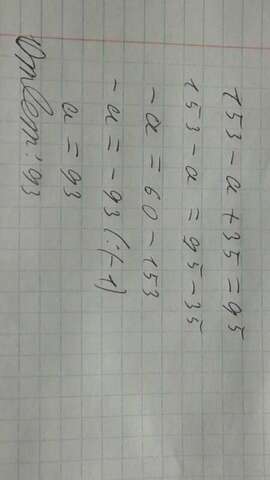 153 - а + 35 = 95
153 - а = 95 - 35
- а = 60 - 153
- а = - 93 (:(-1)
а = 93
Ответ: 93